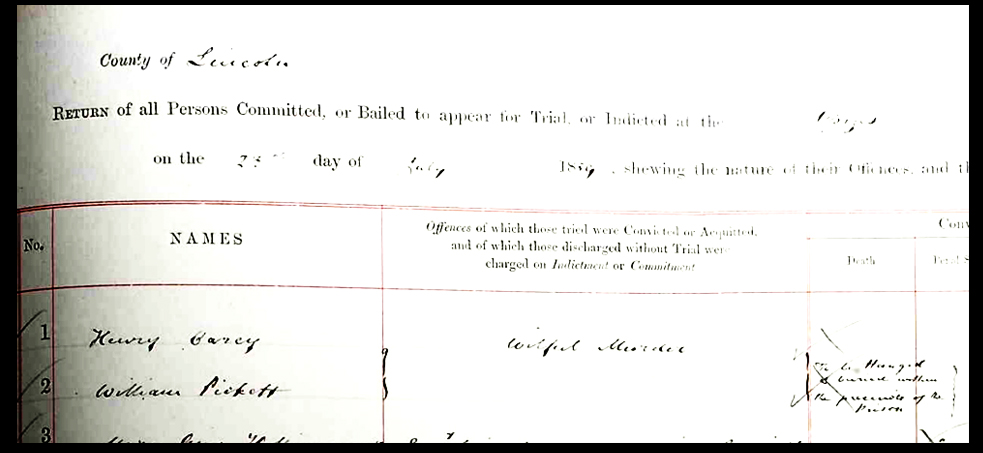 County of Lincoln
RETURN of all Persons Committed, or Bailed to appear for Trial, or Indicted at the Assizes
on the 23 day of July 1859, shewing the nature of their Offences, and
No. NAMES Offences of which those tried were Convicted or Acquitted,
and of which those discharged without Trial were
charged on Indictment or Commitment
Death
1 Henry Carey Wilful Murder
To be Hanged
& buried within
2 William Pickett the precincts of the
Prison
3